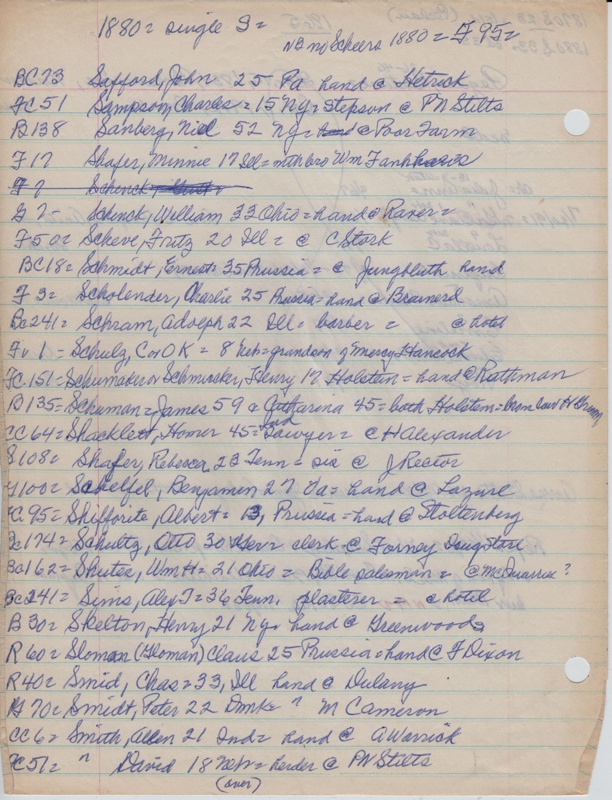 1880 = single S =
NB no Scheers 1880 = F 95 =
BC 73 Safford, John 25 Pa hand @ Hetrick
FC 51 Sampson, Charles = 15 NY = stepson @ PN Stilts
B 138 Sanberg, Niel 52 NY = @ Poor Farm
F 17 Shafer, Minnie 17 Ill = mth bro Wm Fankhauser
F 7 Schenck
G 7 = Schenck, William 33 Ohio = hand @ Raver =
F 50 = Scheve, Fritz 20 Ill = @ C Stork
BC 18 = Schmidt, Ernest 35 Prussia = @ Jungbluth hand
F 3 = Scholender, Charlie 25 Prussia = hand @ Brainerd
Bc 241 = Schram, Adolph 22 Ill = barber = @ hotel
Fv 1 = Schulz, Cor OK = 8 Neb = grandson of Mercy Hancock
FC. 151 = Schumaker or Schmisker, Henry 17 Holstein = hand @ Rathman
B 135 = Schuman = James 59 & Catharina 45 = both Holstein = bro in law H
CC 64 = Shacklett, Homer 45 = Ind Lawyer = @ H Alexander
S 108 = Shafer, Rebecca 23 Tenn = sis @ J Rector
G 100 = Schelfel, Benjamen 27 Va = hand @ Lazure
FC. 95 = Shifforite, Albert = 13, Prussia = hand @ Stoltenberg
Bc 174 = Schultz, Otto 30 Ger = clerk @ Forney Drug Store
Bc 162 = Shutes, Wm H = 21 Ohio = Bible salesman = @ McQuarrie ?
Bc 241 = Sims, Alex T = 36 Tenn. plasterer = @ hotel
B 30 = Skelton, Henry 21 NY = hand @ Greenwoods
R 60 = Sloman (Gloman) Claus 25 Prussia = hand @ F Dixon
R 40 = Smid, Chas = 33, Ill hand @ Dulany
G 70 = Smidt, Peter 22 Dmk = ? M Cameron
CC 6 = Smith, Allen 21 Ind = hand @ A Warrick
FC 51 = " David 18 = herder @ PN Stilts
(over)